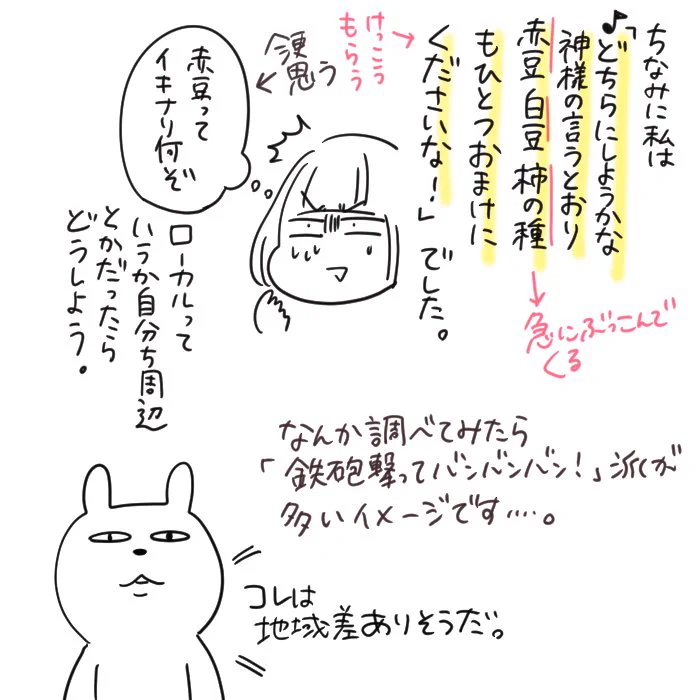 ちなみに私は
♪「どちらにしようかな
神様の言うとおり
赤豆 白豆 柿の種
もひとつおまけに
くださいな！」でした。
急にぶっこんで
くる
けっこう
もらう
今更
思う
赤豆って
イキナリ何ぞ
ローカルって
いうか自分ち周辺
とかだったら
どうしよう。
なんか調べてみたら
「鉄砲撃ってバンバンバン！」派が
多いイメージです….。
コレは
地域差ありそうだ。